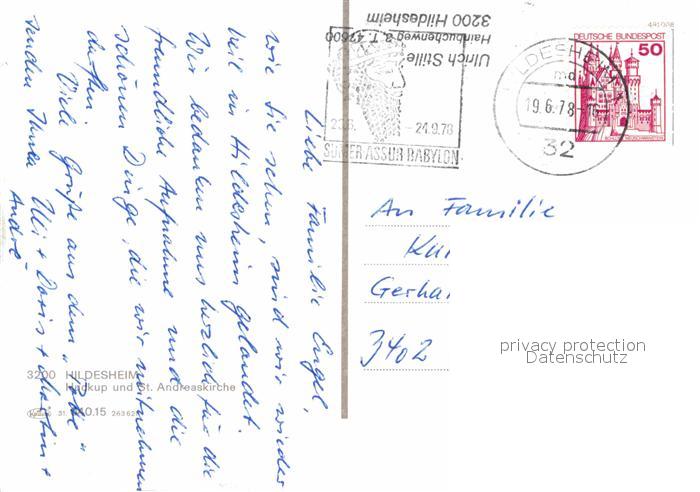 Liebe Familie Engel,
wie Sie sehen, sind wir wieder
heil in Hildesheim gelandet.
Wir bedanken uns herzlich für die
freundliche Aufnahme und die
schönen Dinge, die wir mitnehmen
durften.
Viele Grüße aus dem "
senden Ihnen Uli + Doris + Martin +
André
3200 HILDESHEIM
Huckup und St. Andreaskirche
Ulrich Stille
Hainbuchenweg 8 T. 47600
3200 Hildesheim
- 24.9.78
SUMER ASSUR BABYLON
HILDESHEIM
19.6.78
32
DEUTSCHE BUNDESPOST
50
An Familie
Gerha
3402
privacy protection
Datenschutz